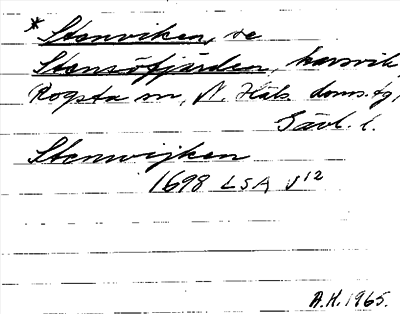 * Stenviken, se
Stensöfjärden, havsvik,
Rogsta sn, N. Häls. doms.tg,
Gävl. l.
Stenwijken
1698 LSA V12
A.H. 1965.